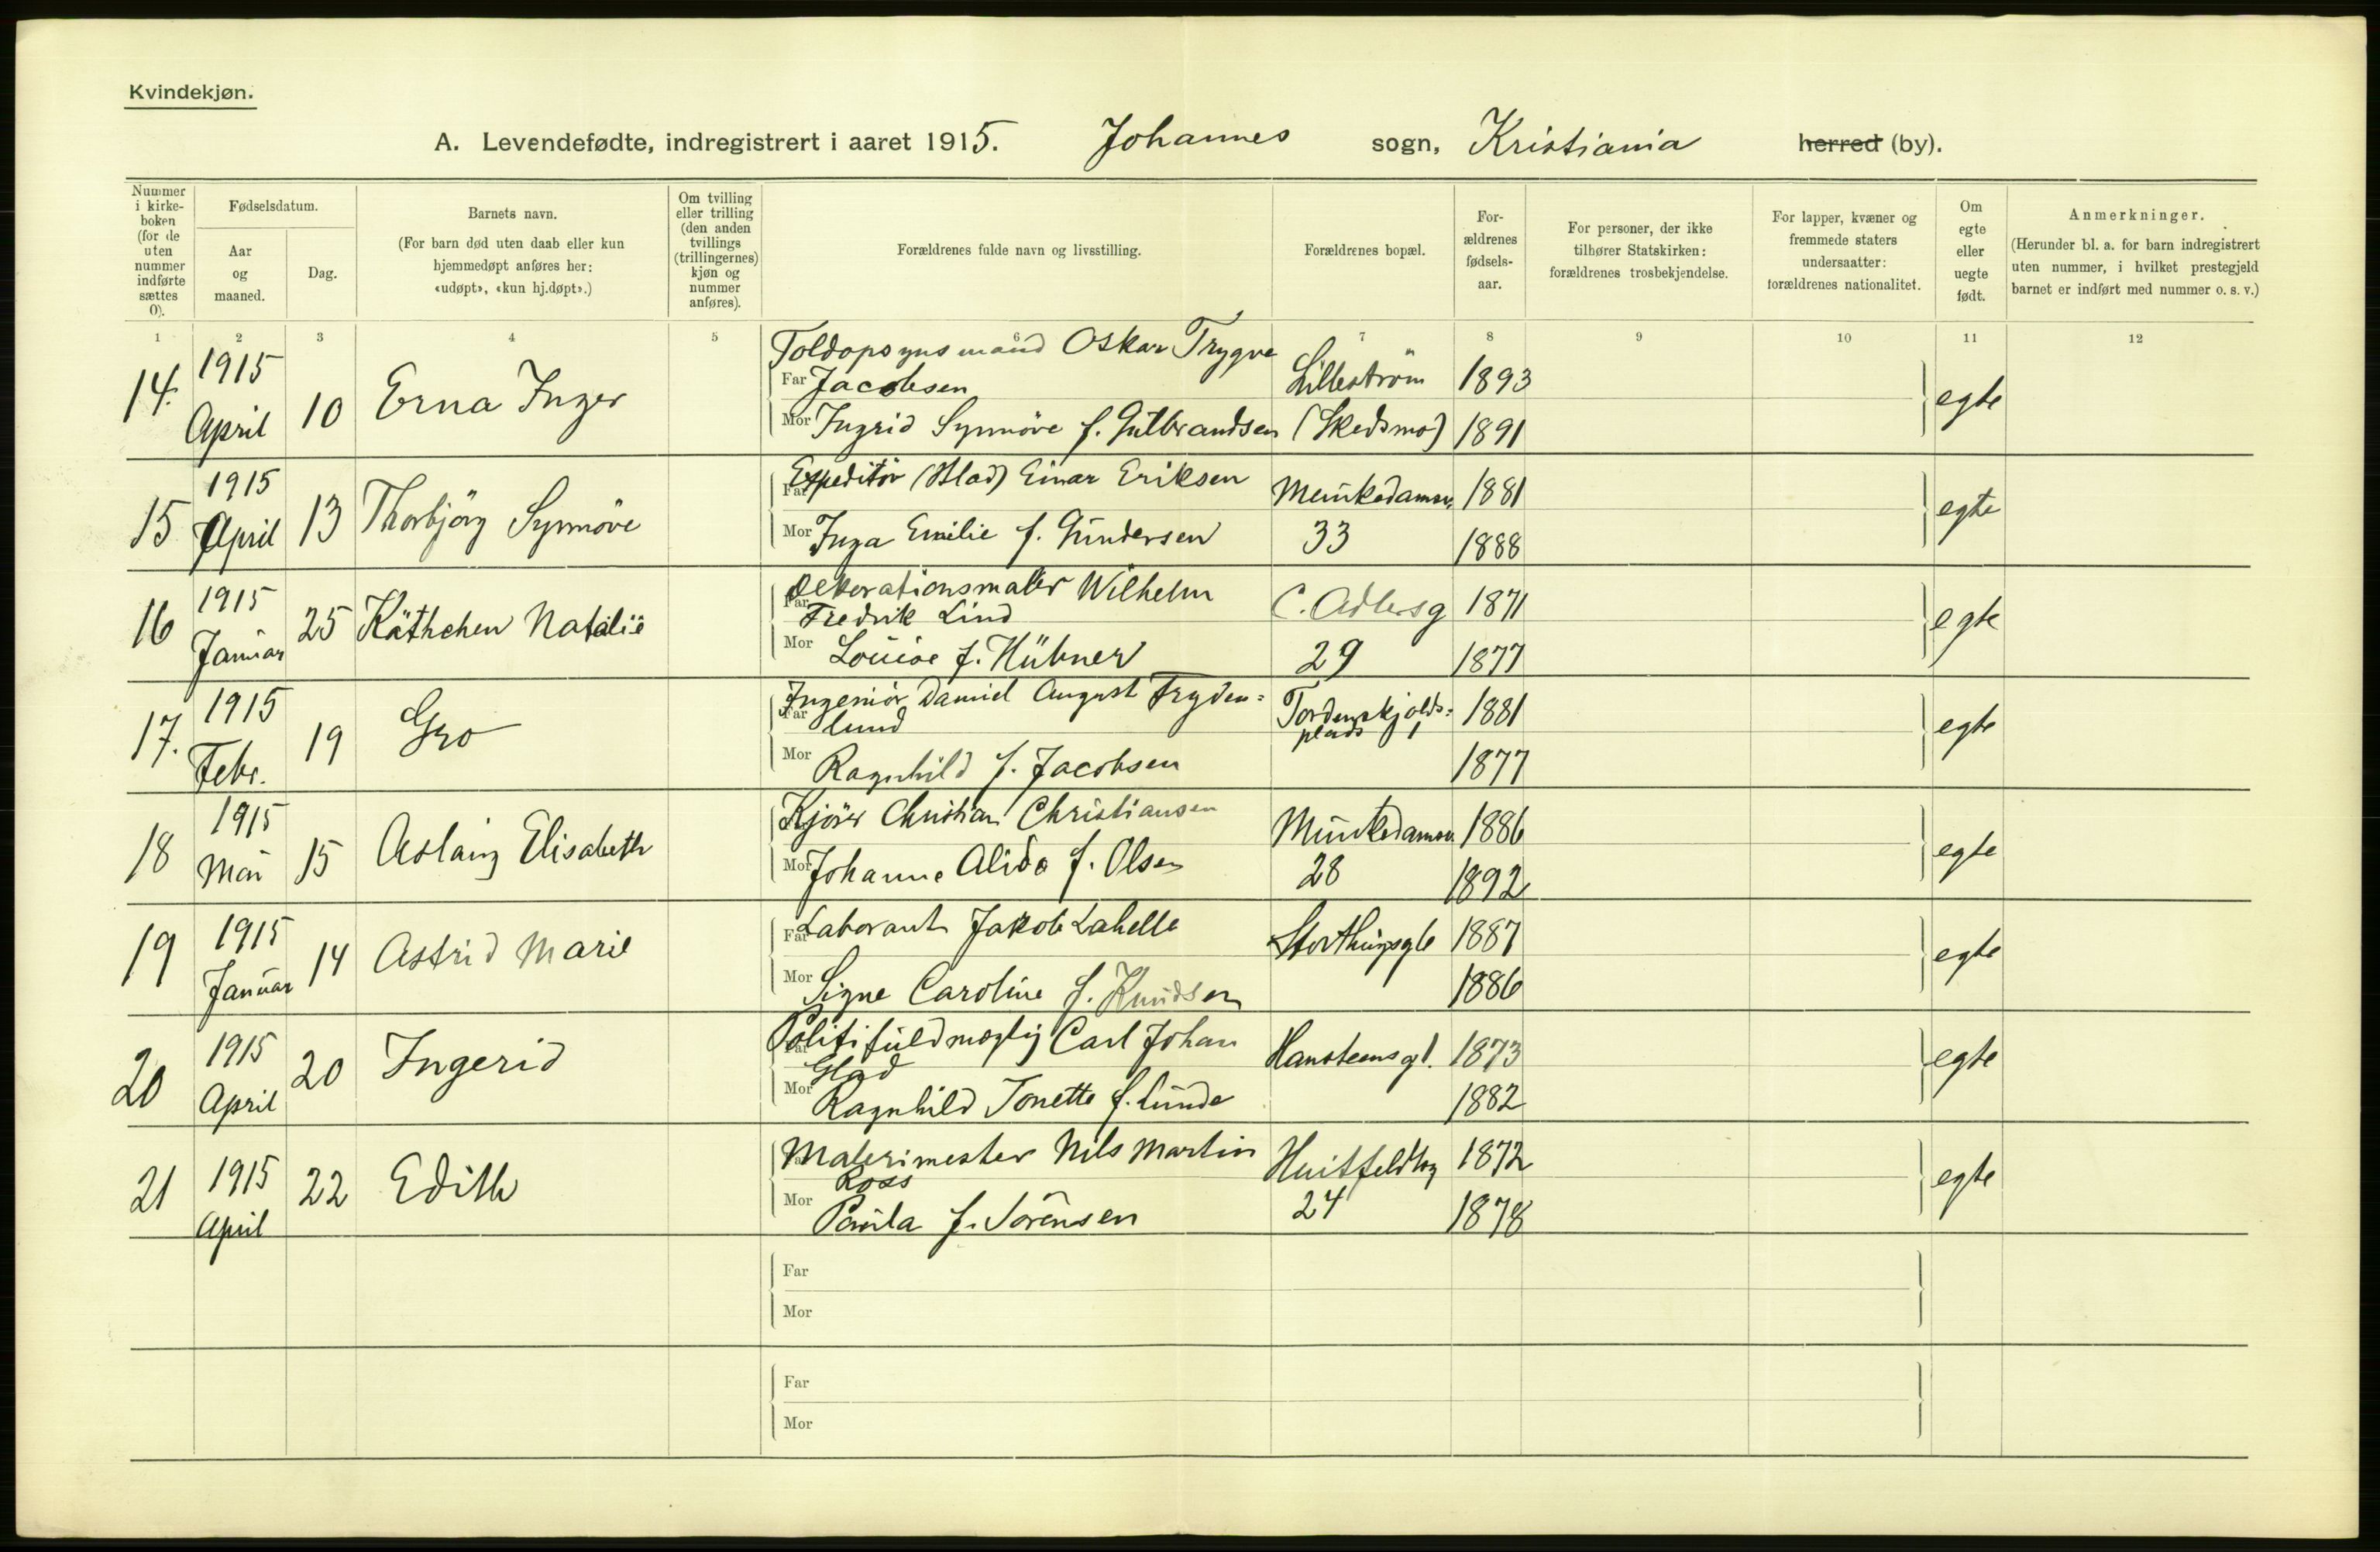 Kvindekjøn.
A. Levendefødte, indregistrert i aaret 1915. Johannes sogn, Kristiania herred (by).
Nummer i kirke-boken (for de uten nummer indførte sættes 0).
Fødselsdatum.
Aar og maaned.
Dag.
Barnets navn.
(For barn død uten daab eller kun hjemmedøpt anføres her: «udøpt», «kun hj.døpt».)
Om tvilling eller trilling (den anden tvillings (trillingernes) kjøn og nummer anføres).
Forældrenes fulde navn og livsstilling.
Forældrenes bopæl.
For-ældrenes fødsels-aar.
For personer, der ikke tilhører Statskirken: forældrenes trosbekjendelse.
For lapper, kvæner og fremmede staters undersaatter: forældrenes nationalitet.
Om egte eller uegte født.
Anmerkninger.
(Herunder bl. a. for barn indregistrert uten nummer, i hvilket prestegjeld barnet er indført med nummer o. s. v.)
1 2 3 4 5 6 7 8 9 10 11 12
14. 1915 April 10 Erna Inger
Toldopsynsmand Oskar Trygve
Far Jacobsen Lilleström 1893
Mor Ingrid Synnöve f. Gulbrandsen (Skedsmo) 1891 egte
15 1915 April 13 Thorbjörg Synnöve
Far Expeditör (Blad) Einar Eriksen Munkedamsv. 1881
Mor Inga Emilie f. Gundersen 33 1888 egte
16 1915 Januar 25 Käthchen Natalie
Far Dekorationsmaler Wilhelm
Fredrik Lind C. Adlersg 1871
Mor Louise f. Hübner 29 1877 egte
17. 1915 Febr. 19 Gro
Far Ingeniör Daniel August Fryden=
lund Tordenskjolds=
plads 1 1881
Mor Ragnhild f. Jacobsen 1877 egte
18 1915 Mai 15 Aslaug Elisabeth
Kjörer Christian Christiansen Munkedamsv. 1886
Mor Johanne Alida f. Olsen 28 1892 egte
19 1915 Januar 14 Astrid Marie
Far Laborant Jakob Lahelle Storthingsg 6 1887
Mor Signe Caroline f. Knudsen 1886 egte
20 1915 April 20 Ingerid
Far Politifuldmægtig Carl Johan
Glad Hansteensg 1. 1873
Mor Ragnhild Tonette f. Lunde 1882 egte
21 1915 April 22 Edith
Malermester Nils Martin
Ross Huitfeldtsg 1872
Mor Paula f. Sörensen 24 1878 egte
Far
Mor
Far
Mor